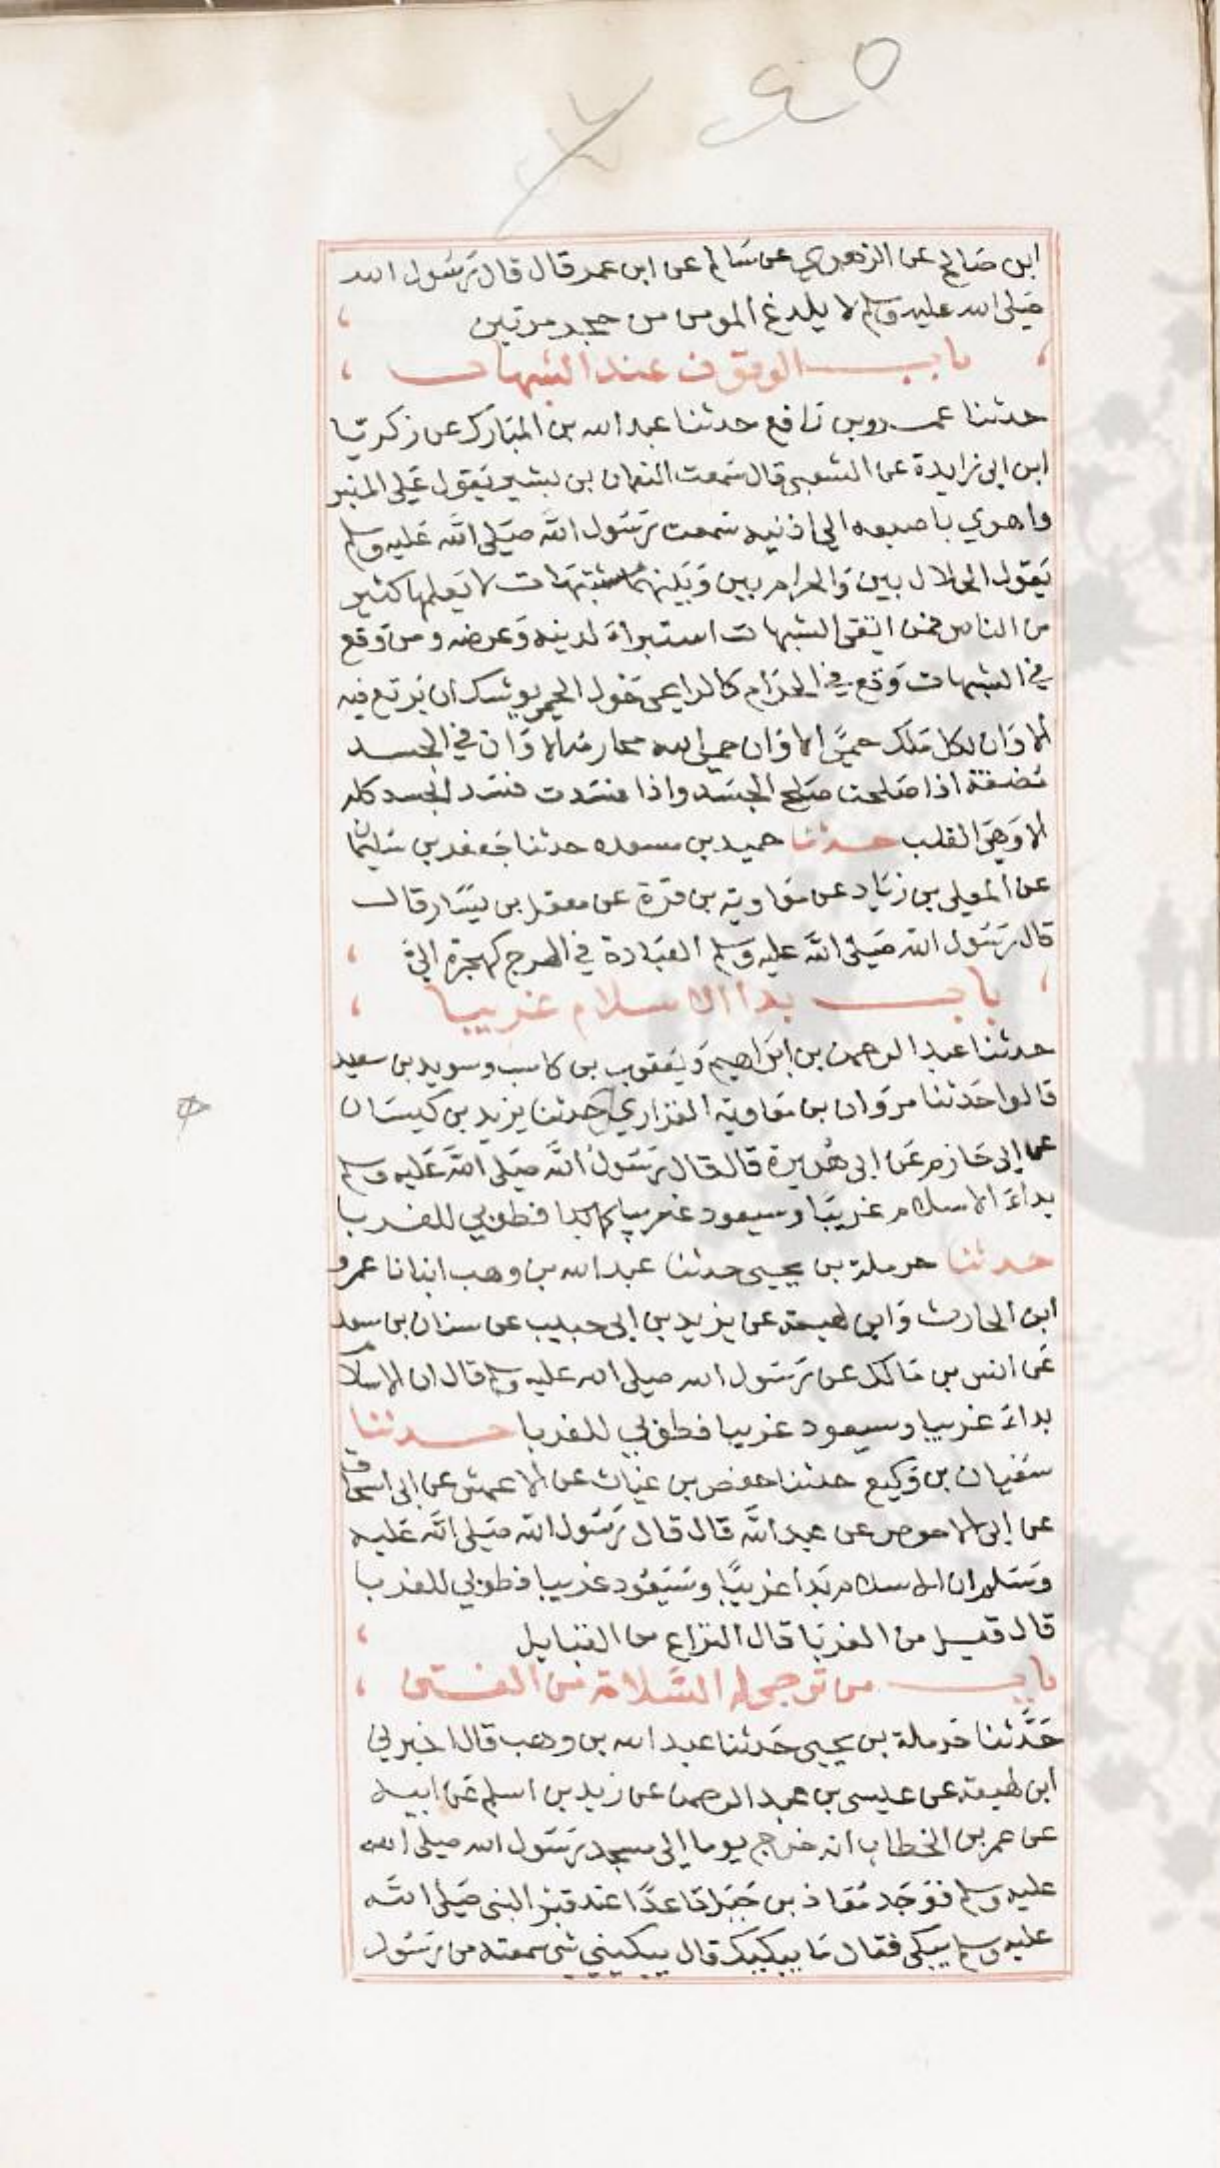 ابن صالح عن الزهري عن سالم عن ابن عمر قال قال رسول الله
صلى الله عليه وسلم لا يلدغ المومن من حجر مرتين
باب الوقوف عند الشبهات
حدثنا عمرو بن رافع حدثنا عبد الله بن المبارك عن زكريا
ابن ابي زايدة عن الشعبي قال سمعت النعمان بن بشير يقول على المنبر
واهوي باصبعه الى اذنيه سمعت رسول الله صلى الله عليه وسلم
يقول الحلال بين والحرام بين وبينهما مشتبهات لا يعلمها كثير
من الناس فمن اتقى الشبهات استبرأ لدينه وعرضه ومن وقع
في الشبهات وقع في الحرام كالراعي حول الحمى يوشك ان يرتع فيه
الا وان لكل ملك حمى الا وان حمى الله محارمه الا وان في الجسد
مضغة اذا صلحت صلح الجسد واذا فسدت فسد الجسد كله
الا وهي القلب حدثنا حميد بن مسعده حدثنا جعفر بن سليمان
عن المعلى بن زياد عن معاوية بن قرة عن معقل بن يسار قال
قال رسول الله صلى الله عليه وسلم العبادة في الهرج كهجرة الي
باب بدا الاسلام غريبا
حدثنا عبد الرحمن بن ابراهيم ويعقوب بن كاسب وسويد بن سعيد
قالوا حدثنا مروان بن معاوية الفزاري حدثنا يزيد بن كيسان
عن ابي حازم عن ابي هريرة قال قال رسول الله صلى الله عليه وسلم
بداء الاسلام غريبا وسيعود غريبا كما بدا فطوبي للغربا
حدثنا حرملة بن يحيى حدثنا عبد الله بن وهب انبانا عمرو
ابن الحارث وابن لهيعة عن يزيد بن ابي حبيب عن سنان بن سعد
عن انس بن مالك عن رسول الله صلى الله عليه وسلم قال ان الاسلام
بداء غريبا وسيعود غريبا فطوبي للغربا حدثنا
سفيان بن وكيع حدثنا حفص بن غياث عن الاعمش عن ابي اسحاق
عن ابي الاحوص عن عبد الله قال قال رسول الله صلى الله عليه
وسلم ان الاسلام بدا غريبا وسيعود غريبا فطوبي للغربا
قال قيل من الغربا قال النزاع من القبايل
باب من ترجي له السلامة من الفتن
حدثنا حرملة بن يحيى حدثنا عبد الله بن وهب قال اخبرني
ابن لهيعة عن عيسى بن عبد الرحمن عن زيد بن اسلم عن ابيه
عن عمر بن الخطاب انه خرج يوما الى مسجد رسول الله صلى الله
عليه وسلم فوجد معاذ بن جبل قاعدا عند قبر النبي صلى الله
عليه وسلم يبكي فقال ما يبكيك قال يبكيني شي سمعته من رسول